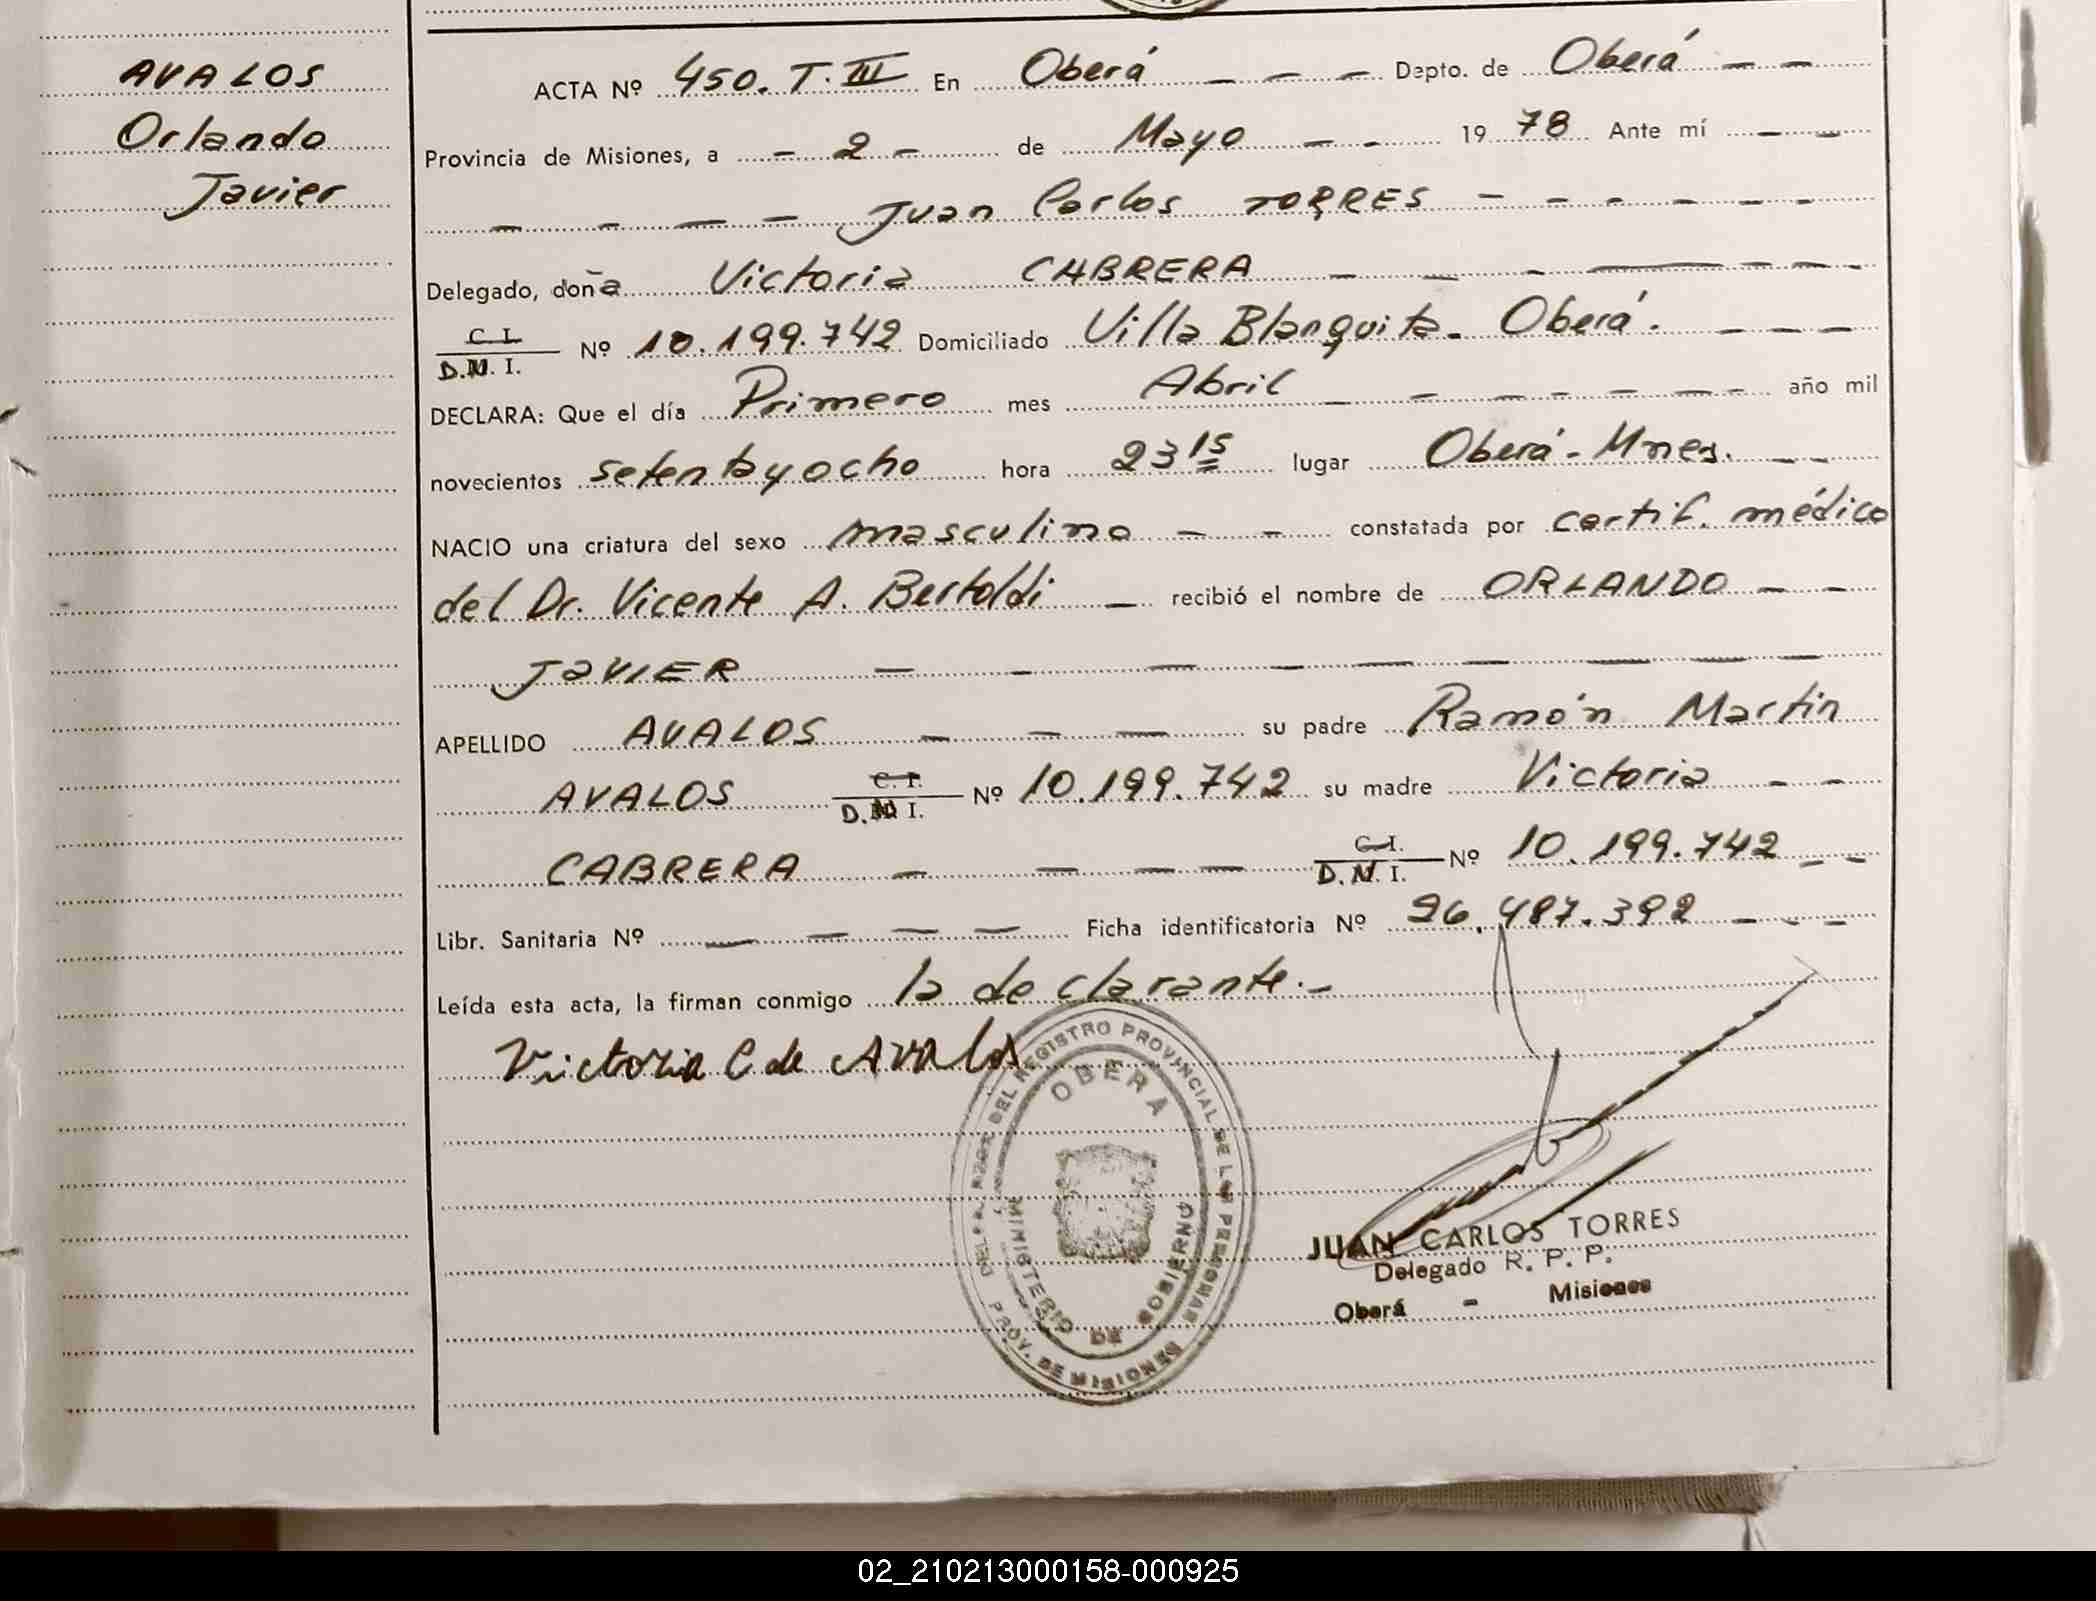 AVALOS
Orlando
Javier
ACTA Nº 450. T. III En Oberá — — — Depto. de Oberá — —
Provincia de Misiones, a – 2 – de Mayo — – 19 78 Ante mí — —
— – — — Juan Carlos TORRES – – – – – –
Delegado, doña Victoria CABRERA — — – — – – –
C. I.
D.N. I. Nº 10.199.742 Domiciliado Villa Blanquita. Oberá. — — —
DECLARA: Que el día Primero mes Abril — – – – – – – año mil
novecientos setentayocho hora 23 15 lugar Oberá - Mnes. — —
NACIO una criatura del sexo masculino — – constatada por certif. médico
del Dr. Vicente A. Bertoldi — recibió el nombre de ORLANDO — –
JAVIER — – — – — — — — —
APELLIDO AVALOS — — — su padre Ramón Martin
AVALOS C. I.
D.N. I. Nº 10.199.742 su madre Victoria – –
CABRERA — — — — C. I.
D. N. I. Nº 10.199.742 – –
Libr. Sanitaria Nº — — — — Ficha identificatoria Nº 26.487.392 – – –
Leída esta acta, la firman conmigo la declarante.–
Victoria C de Avalos
DEL REGISTRO PROVINCIAL DE LAS PERSONAS
OBERA
MINISTERIO DE GOBIERNO
PROV. DE MISIONES
JUAN CARLOS TORRES
Delegado R. P. P.
Oberá - Misiones
02_210213000158-000925